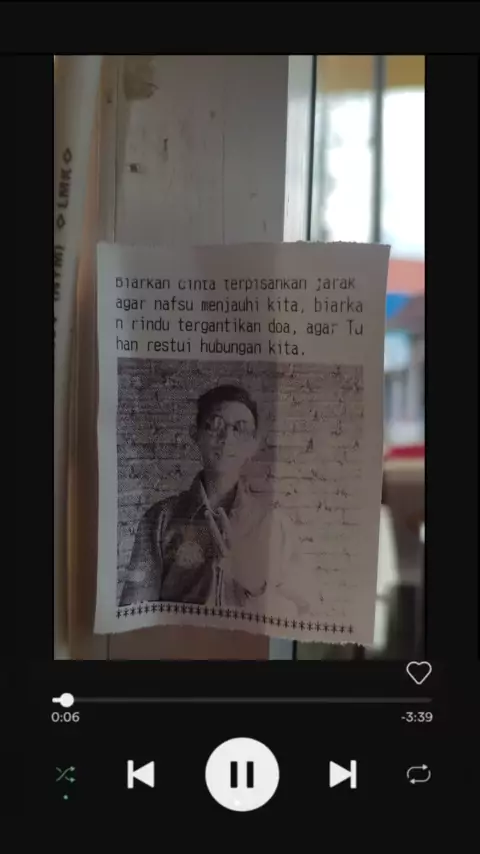 LMK
Biarkan cinta terpisahkan jarak
agar nafsu menjauhi kita, biarka
n rindu tergantikan doa, agar Tu
han restui hubungan kita.
*************************
0:06
-3:39